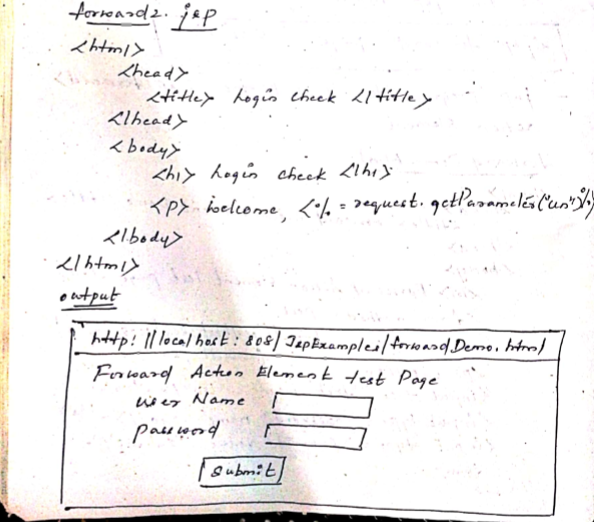 forward2. jsp
<html>
<head>
<title> Login check </title>
</head>
<body>
<h1> Login check </h1>
<p> welcome, <%= request. getParameter("un")%>
</body>
</html>
output
http://localhost: 808/ JspExamples/forwardDemo.html
Forward Action Element test Page
user Name
password
submit